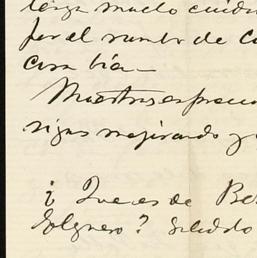 tenga mucho cuida
por el rumbo de Ca
casa tía—
Muestras espreci
sigas mejorando y
¿ Que es de Be
Salguero? Saludo